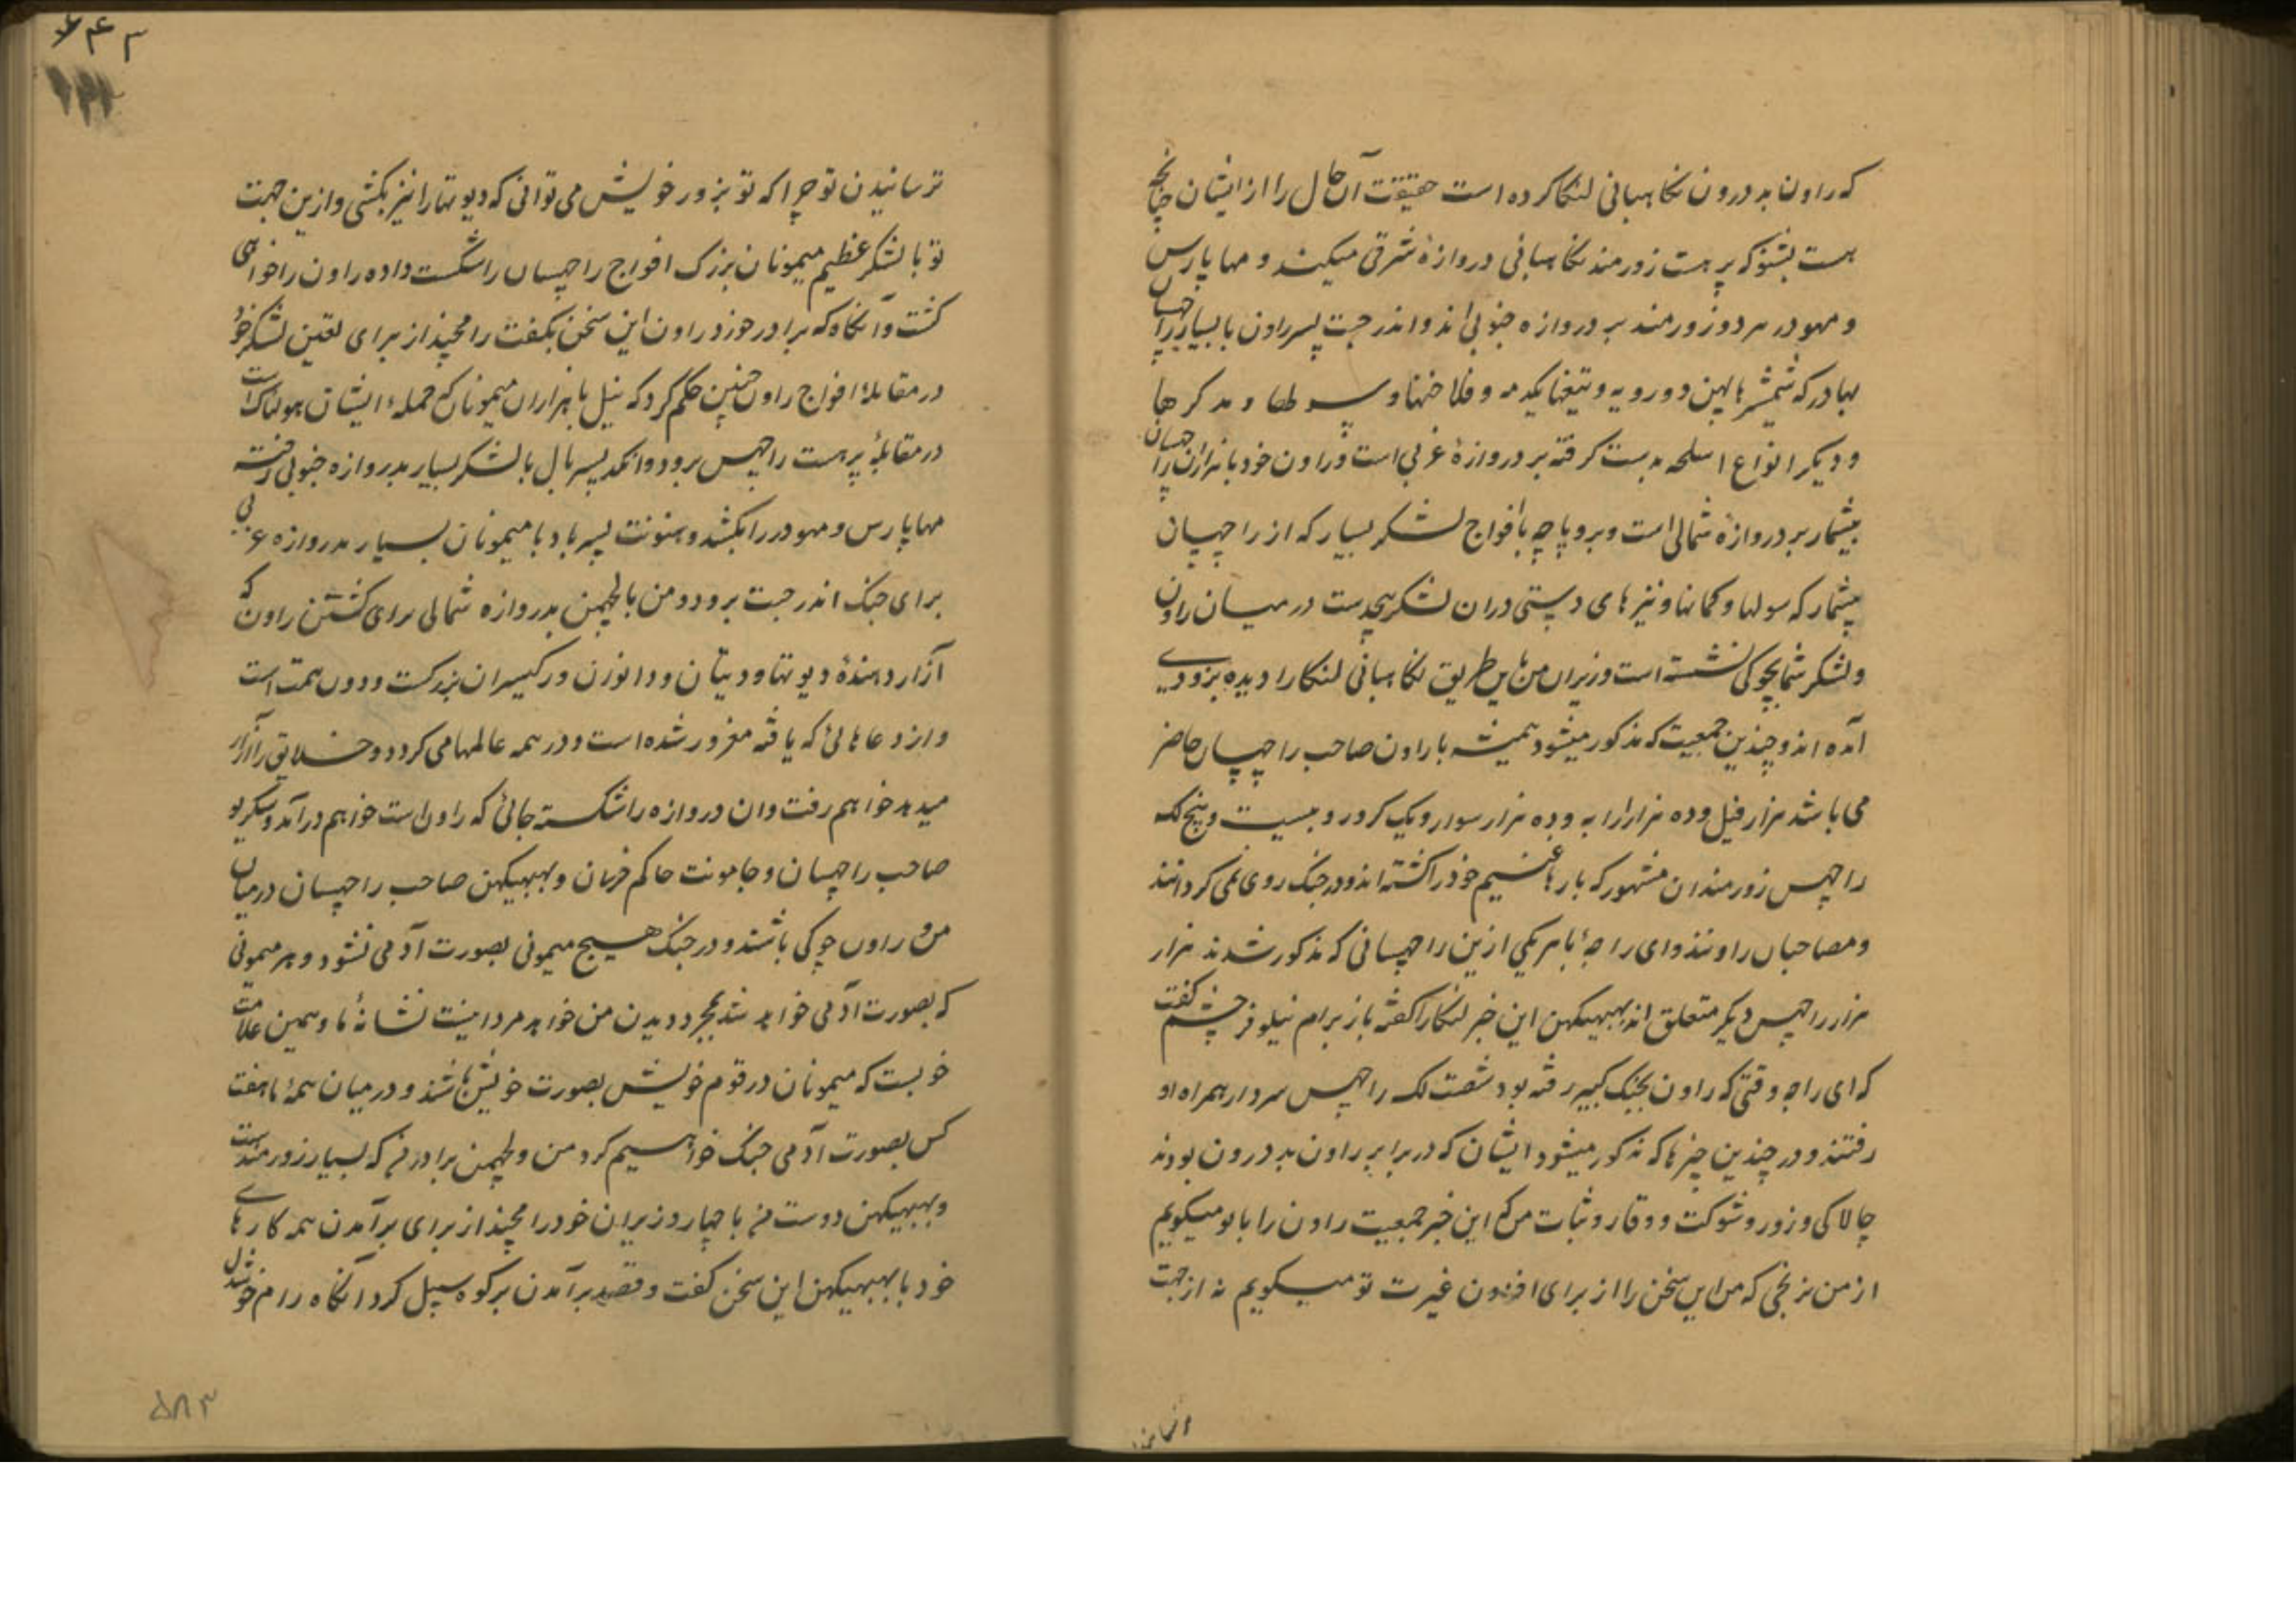 که راون بد درون نگاهبانی لنکا کرده است حقیقت آن حال را از ایشان چنانچه
هست بشنو که پرهست زورمند نگاهبانی دروازهٔ شرقی میکند و مهاپارس
و مهودر هر دو زورمند بر دروازه جنوبی اند و اندرجت پسر راون با بسیار راچهسان
بهادر که شمشیرهای پهن دو رویه و تیغهای یکدمه و و مدکرها
و دیگر انواع اسلحه بدست گرفته بر دروازهٔ غربی است و راون خود با هزاران راچهسان
بیشمار بر دروازهٔ شمالی است و بروپاچه با افواج لشکر بسیار که از راچهسان
بیشمار که سولها و کمانها و نیزهای دستی دران لشکر بیحدست در میان راون
و لشکر شما بچوکی نشسته است وزیران من باین طریق نگاهبانی لنکا را دیده بزودی
آمده اند و چندین جمعیت که مذکور میشود همیشه با راون صاحب راچهسان حاضر
می باشد هزار فیل و ده هزار ارابه و ده هزار سوار و یک کرور و بیست و پنج لکه
راچهس زورمندان مشهور که بارها غنیم خود را کشته اند و در جنگ روی نمی گردانند
و مصاحبان راونند و ای راجه با هر یکی ازین راچهسانی که مذکور شدند هزار
هزار راچهس دیگر متعلق اند بهبهیکهن این خبر لنکا را گفته باز برام نیلوفر چشم گفت
که ای راجه وقتی که راون بجنگ کبیر رفته بود شصت لک راچهس سردار همراه او
رفتند و در چندین چیزها که مذکور میشود ایشان که در برابر راون بد درون بودند
چالاکی و زور و شوکت و وقار و ثبات من که این خبر جمعیت راون را با تو میگویم
از من نرنجی که من این سخن را از برای افزودن غیرت تو میگویم نه از جهت
ترسانیدن تو چرا که تو بزور خویش می توانی که دیوتها را نیز بکشی و ازین جهت
تو با لشکر عظیم میمونان بزرگ افواج راچهسان را شکست داده راون را خواهی
کشت و آنگاه که برادر خورد راون این سخن بگفت رامچند از برای تعین لشکر خود
در مقابلهٔ افواج راون چنین حکم کرد که نیل با هزاران میمونان که حملهٔ ایشان هولناک است
در مقابلهٔ پرهست راچهس برود و انگد پسر بال با لشکر بسیار بدروازه جنوبی رفته
مهاپارس و مهودر را بکشد و هنونت پسر باد با میمونان بسیار بدروازه غربی
برای جنگ اندرجت برود و من با لچهمن بدروازه شمالی برای کشتن راون که
آزار دهندهٔ دیوتها و دیتان و دانوزن و رکیسران بزرگست و دون همت است
و از دعاهائی که یافته مغرور شده است و در همه عالمها می گردد و خلایق را آزار
میدهد خواهم رفت و ان دروازه را شکسته جائی که راون است خواهم درآمد و سکریو
صاحب راچهسان و جامونت حاکم خرسان و بهبهیکهن صاحب راچهسان درمیان
من و راون چوکی باشند و در جنگ هیچ میمونی بصورت آدمی نشود و هر میمونی
که بصورت آدمی خواهد شد بمجرد دیدن من خواهد مرد اینست نشانهٔ ما و همین علامت
خوبست که میمونان در قوم خویش بصورت خویش باشند و درمیان همهٔ ما هفت
کس بصورت آدمی جنگ خواهیم کرد من و لچهمن برادر من که بسیار زورمندست
و بهبهیکهن دوست من با چهار وزیران خود رامچند از برای برآمدن همه کارهای
خود با بهبهیکهن این سخن گفت و قصد برآمدن بر کوه سبیل کرد آنگاه رام خوشدل
۵۸۳